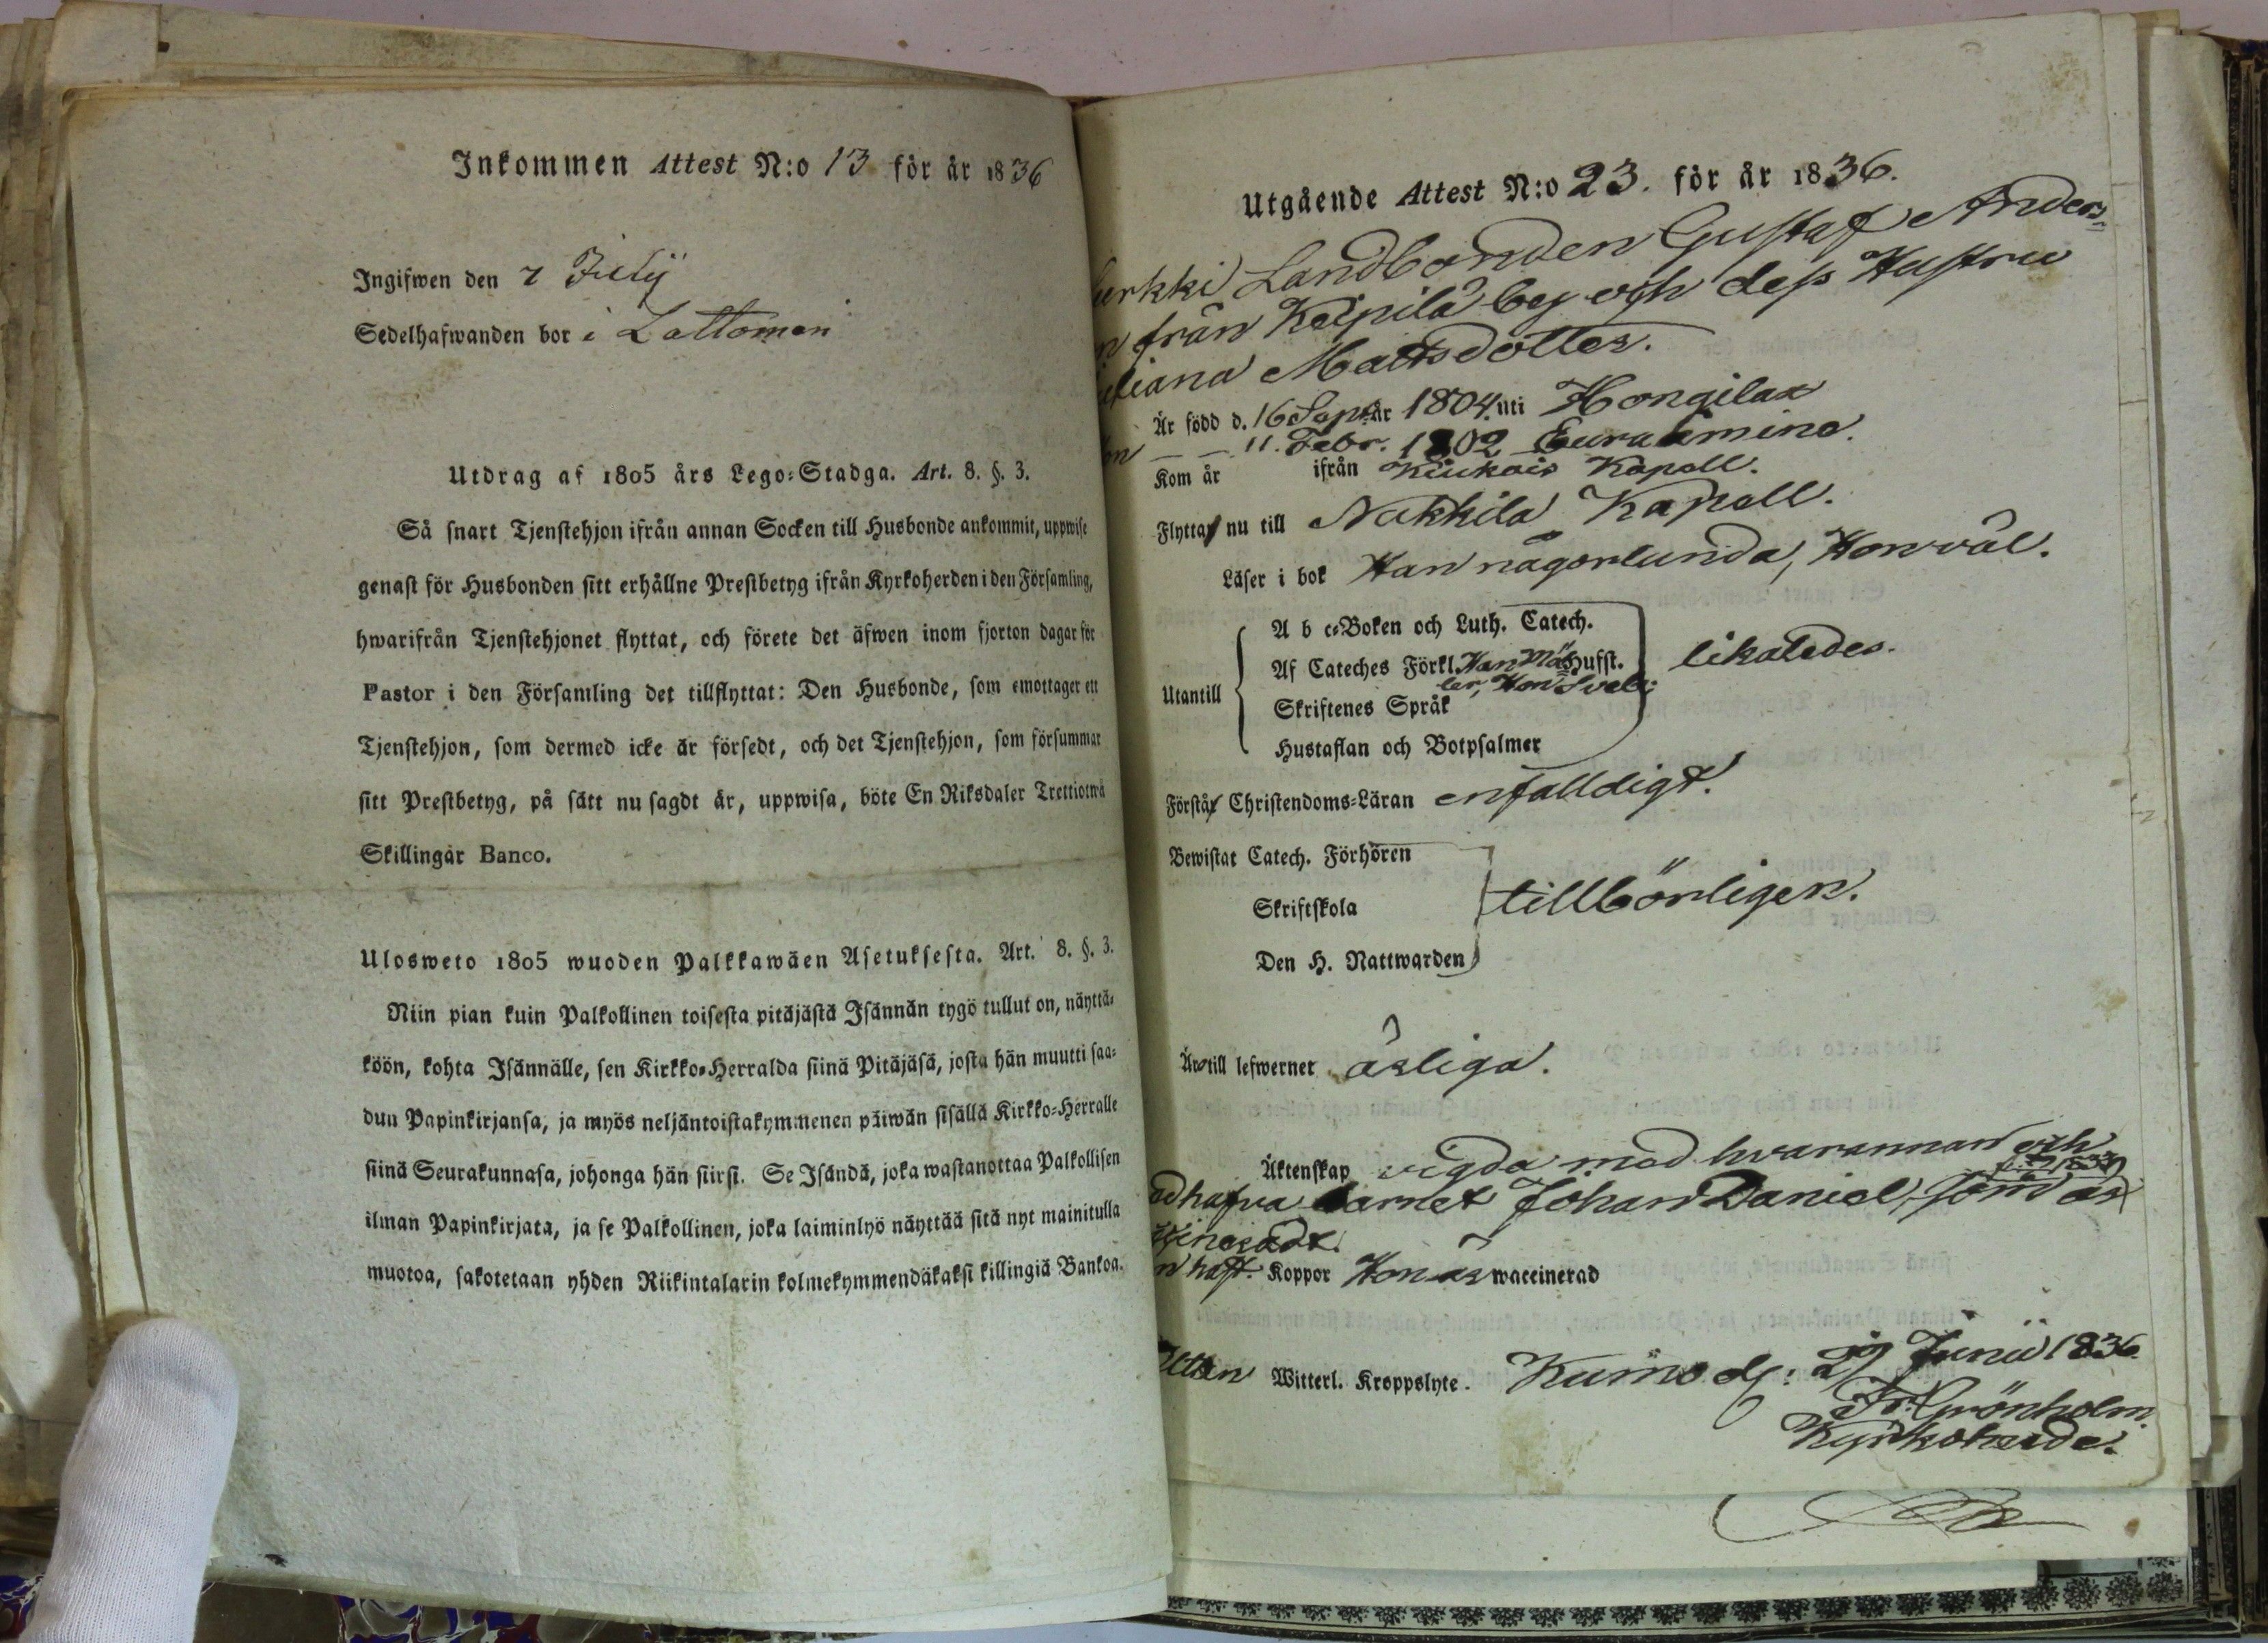 Inkommen Attest N:o 13 för år 1836
Ingifwen den 7 Julij
Sedelhafwanden bor i Lattomeri
Utdrag af 1805 års Lego-Stadga. Art. 8. §. 3.
Så snart Tjenstehjon ifrån annan Socken till Husbonde ankommit, uppwise
genast för Husbonden sitt erhållne Prestbetyg ifrån Kyrkoherden i den Församling,
hwarifrån Tjenstehjonet flyttat, och förete det äfwen inom fjorton dagar för
Pastor i den Församling det tillflyttat: Den Husbonde, som emottager ett
Tjenstehjon, som dermed icke är försedt, och det Tjenstehjon, som försummar
sitt Prestbetyg, på sätt nu sagdt är, uppwisa, böte En Riksdaler Trettiotwå
Skillingar Banco.
Ulosweto 1805 wuoden Palkkawäen Asetuksesta. Art. 8. §. 3.
Niin pian kuin Palkollinen toisesta pitäjästä Isännän tygö tullut on, näyttä-
köön, kohta Isännälle, sen Kirkko-Herralda siinä Pitäjäsä, josta hän muutti saa-
dun Papinkirjansa, ja myös neljäntoistakymmenen päiwän sisällä Kirkko-Herralle
siinä Seurakunnasa, johonga hän siirsi. Se Isändä, joka wastanottaa Palkollisen
ilman Papinkirjata, ja se Palkollinen, joka laiminlyö näyttää sitä nyt mainitulla
muotoa, sakotetaan yhden Riikintalarin kolmekymmendäkaksi killingiä Bankoa.
Utgående Attest N:o 23. för år 1836.
urkki Landbonden Gustaf Anders-
n från Keipilä by och dess Hustru
liana Mattsdotter.
Är född d. 16 Sept. år 1804. uti Hongilax
on — — 11. Febr. 1802 Euraåminne.
Kom år ifrån Kiukais Kapell.
Flytta nu till Nakkila Kapell.
Läser i bok Han någorlunda, Hon väl.
Utantill
A b c-Boken och Luth. Catech.
Af Cateches Förkl. Han Hufst. likaledes.
Hon Sveb:
Skriftenes Språk
Hustaflan och Botpsalmer
Förstå Christendoms-Läran enfalldigt.
Bewistat Catech. Förhören
Skriftskola tillbörligen.
Den H. Nattwarden
Äro till lefwernet ärliga.
Äktenskap vigda med hvarannan och
hafva barnet Johan Daniel, som är
n haft. Koppor Hon är waccinerad
Utan Witterl. Kroppslyte. Kumo d: 27 Junii 1836.
Fr: Grönholm.
Kyrkoherde.